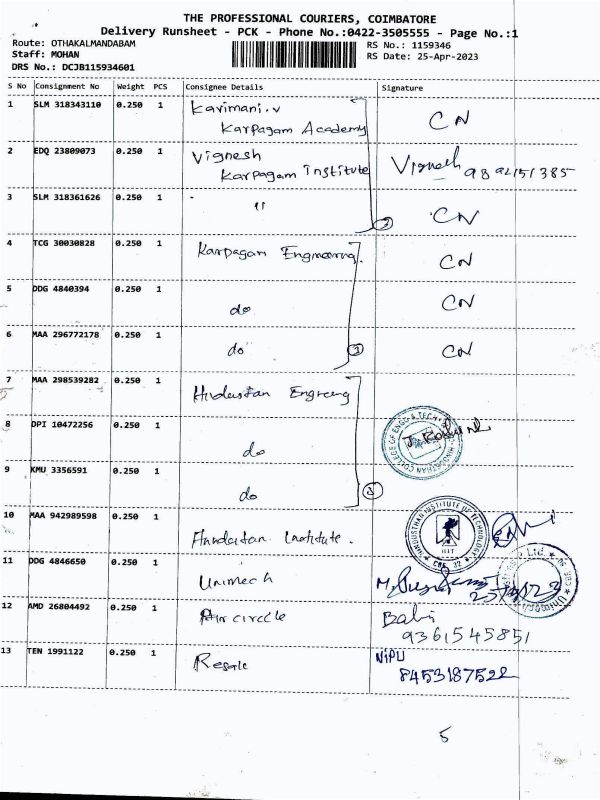 THE PROFESSIONAL COURIERS, COIMBATORE
Delivery Runsheet - PCK - Phone No.:0422-3505555 - Page No.:1
Route: OTHAKALMANDABAM
RS No.: 1159346
Staff: MOHAN
RS Date: 25-Apr-2023
DRS No.: DCJB115934601
S No Consignment No Weight PCS Consignee Details Signature
1 SLM 318343110 0.250 1 Kavimani.v
Karpagam Academy CN
2 EDQ 23809073 0.250 1 Vignesh
Karpagam Institute Vignesh
3 SLM 318361626 0.250 1 " CN
2
4 TCG 30030828 0.250 1 Karpagam Engineering. CN
5 DDG 4840394 0.250 1 do CN
6 MAA 296772178 0.250 1 do CN
7 MAA 298539282 0.250 1 Hindustan Engreeng
8 DPI 10472256 0.250 1 do
9 KMU 3356591 0.250 1 do
3
10 MAA 942989598 0.250 1 Hindustan Institute.
HINDUSTHAN INSTITUTE OF TECHNOLOGY
HIT
CBE 32
11 DDG 4846650 0.250 1 Unimech
12 AMD 26804492 0.250 1 Air circle Babi
9361545851
13 TEN 1991122 0.250 1 Resale NiPU
8453187522
5